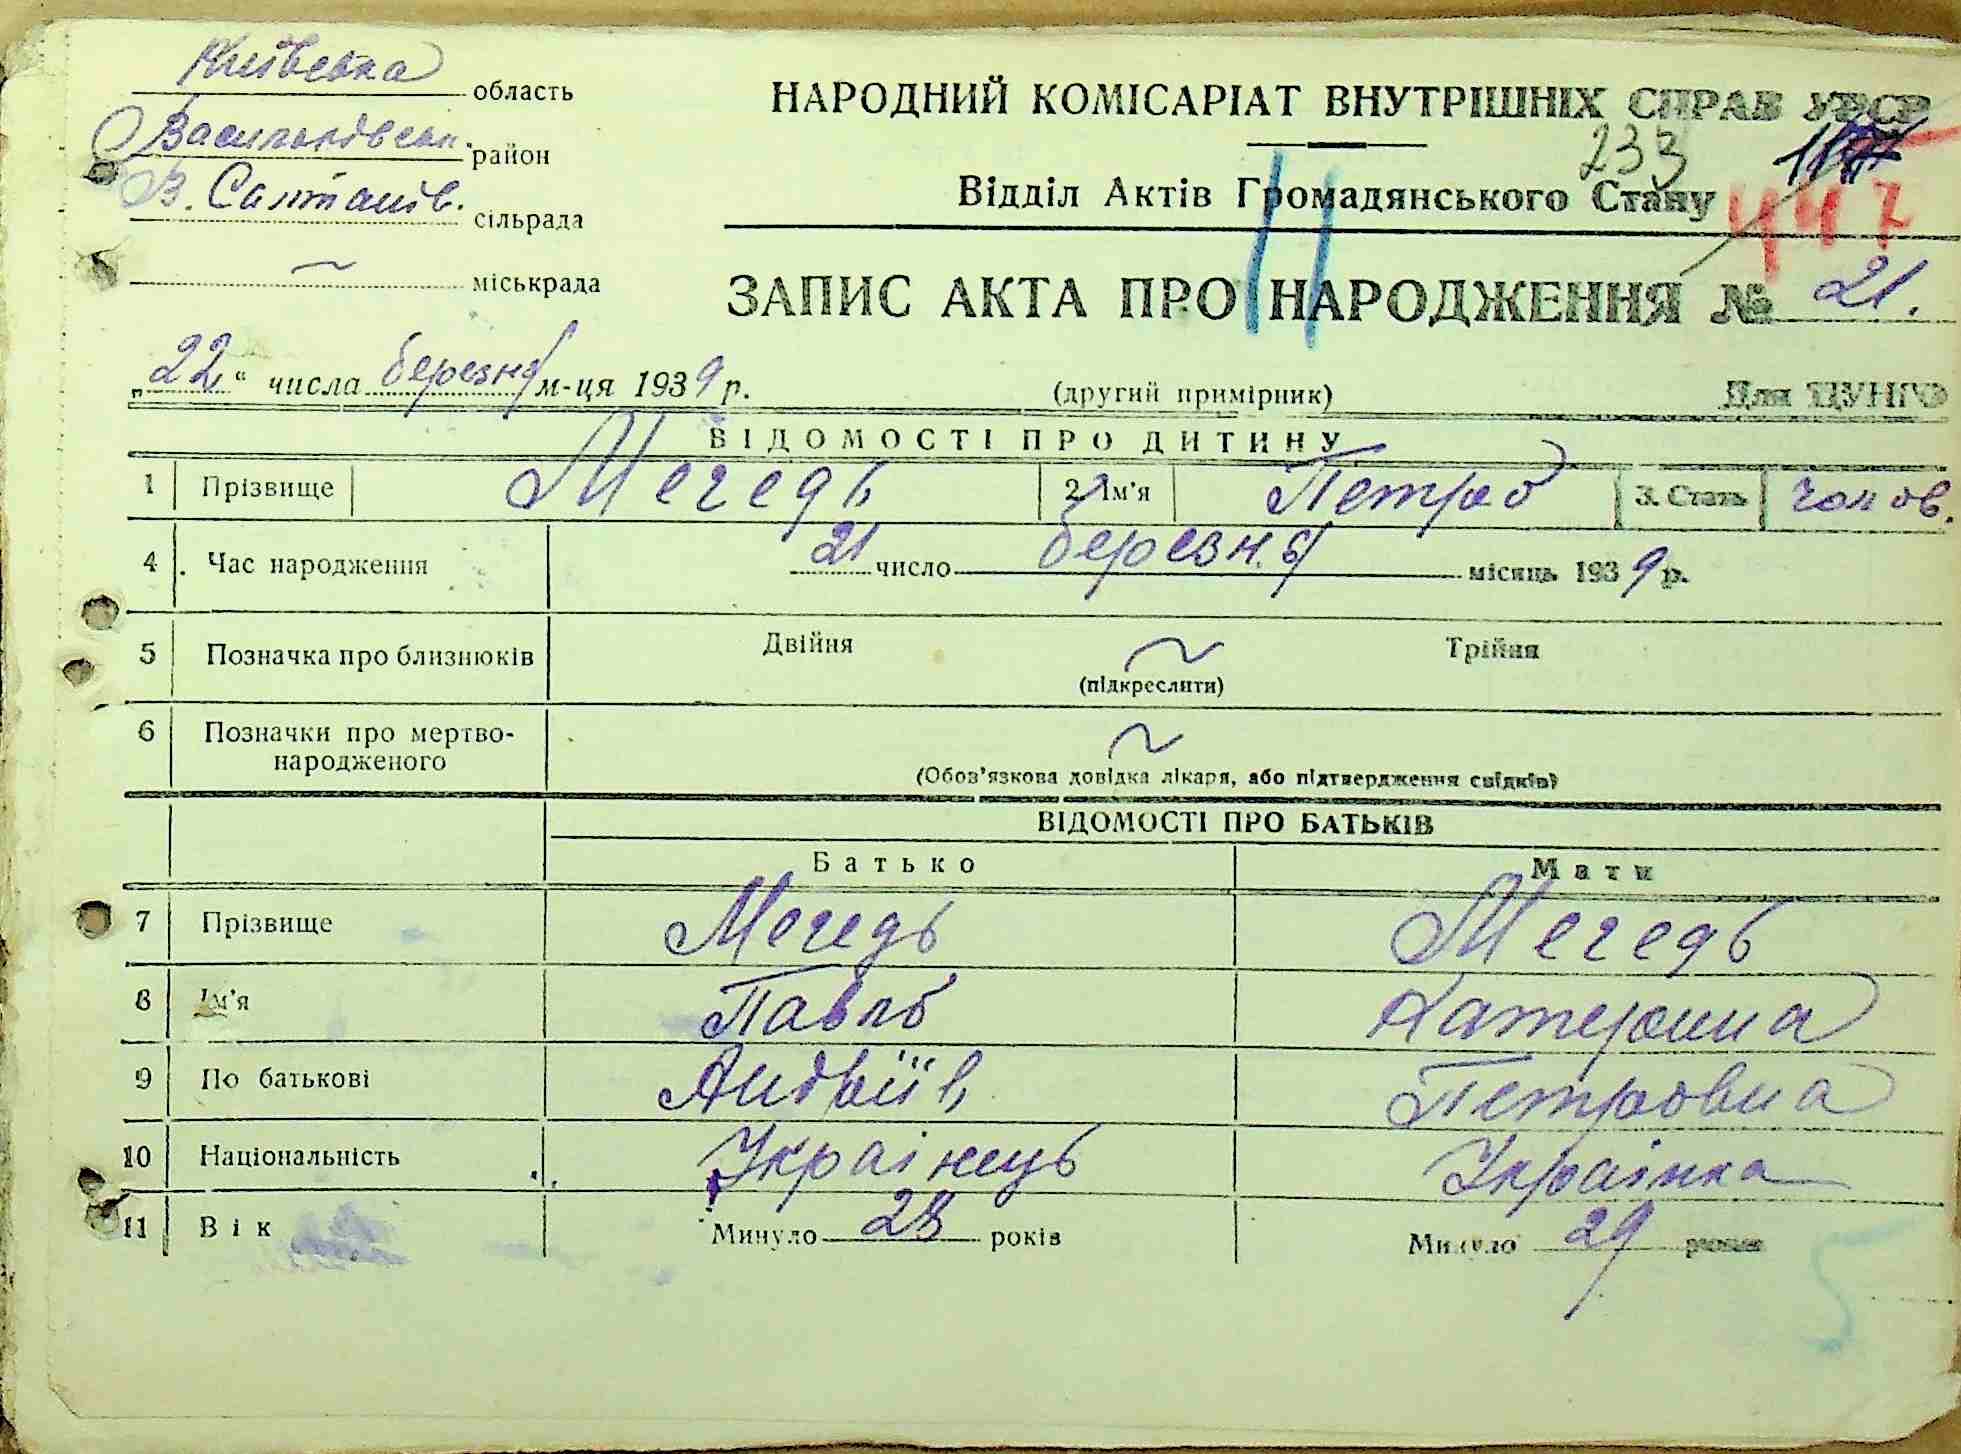 Київська область
Васильківськ. район
В. Салтанів. сільрада
~ міськрада
НАРОДНИЙ КОМІСАРІАТ ВНУТРІШНІХ СПРАВ УРСР
233
Відділ Актів Громадянського Стану
447
ЗАПИС АКТА ПРО НАРОДЖЕННЯ № 21.
„22“ числа березня м-ця 1939 р.
(другий примірник)
Для ЦУНГО
ВІДОМОСТІ ПРО ДИТИНУ
1 Прізвище Мегедь 2 Ім'я Петро 3. Стать чолов.
4 Час народження 21 число березня місяць 1939 р.
5 Позначка про близнюків Двійня ~ Трійня
(підкреслити)
6 Позначки про мертво-
народженого ~
(Обов'язкова довідка лікаря, або підтвердження свідків)
ВІДОМОСТІ ПРО БАТЬКІВ
Батько Мати
7 Прізвище Мегедь Мегедь
8 Ім'я Павло Катерина
9 По батькові Андріїв. Петровна
10 Національність Украінець Украінка
11 Вік Минуло 28 років Минуло 29 років